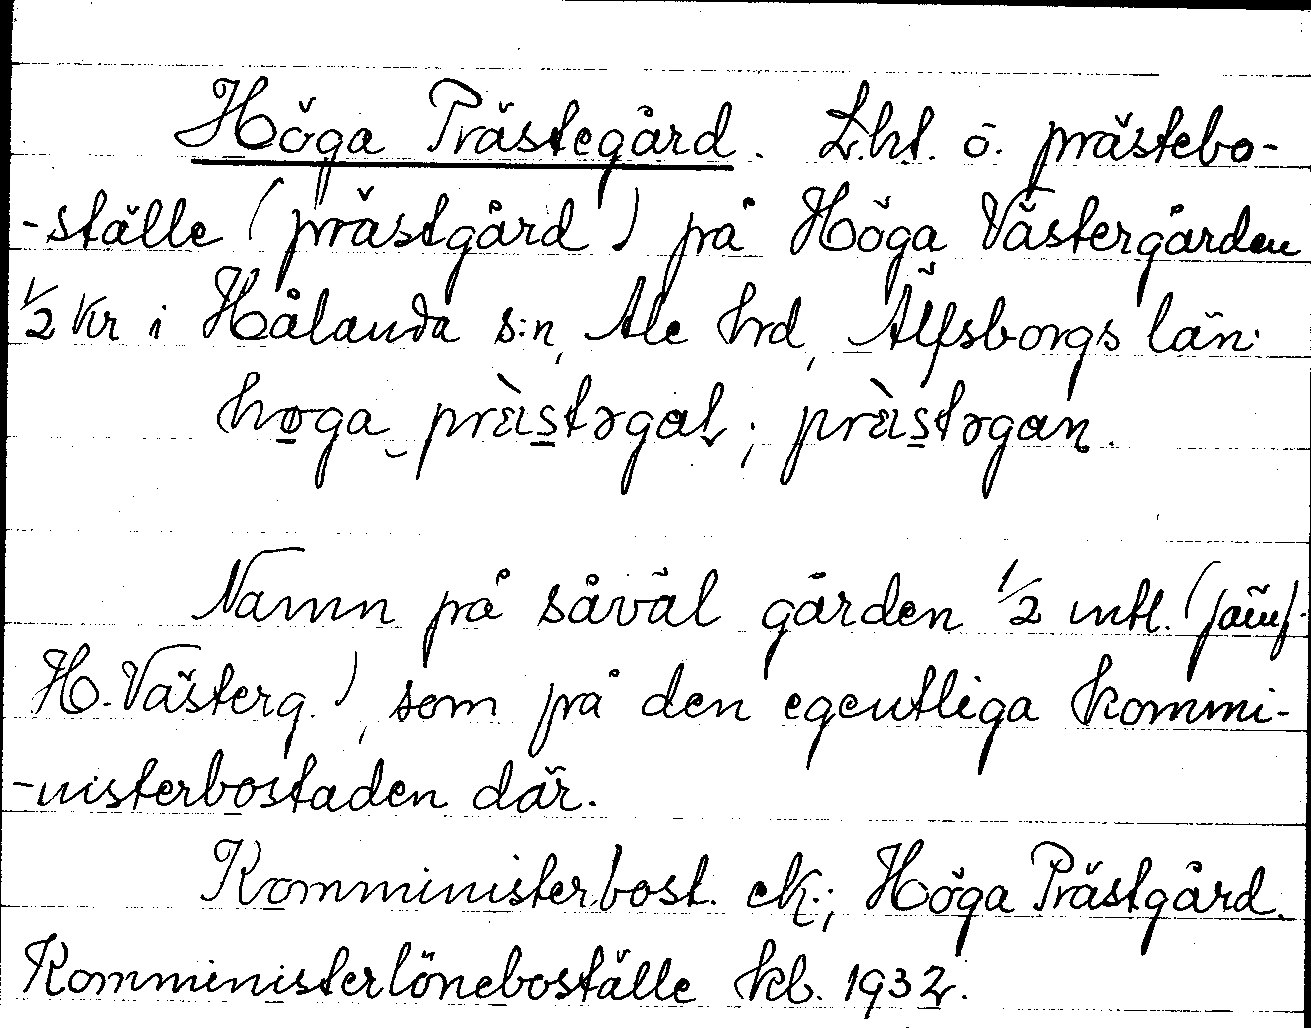 Höga Prästegård. L.ht. o. prästebo-
-ställe (prästgård) på Höga Västergården
1/2 kr i Hålanda s:n, Ale hrd, Älfsborgs län.
høga prὲstəgaḷ; prὲstəgaṇ.
Namn på såväl gården 1/2 mtl. (jämf.
H. Västerg.), som på den egentliga kommi-
-nisterbostaden där.
Komministerbost. ek.; Höga Prästgård.
Komministerlöneboställe kb. 1932.